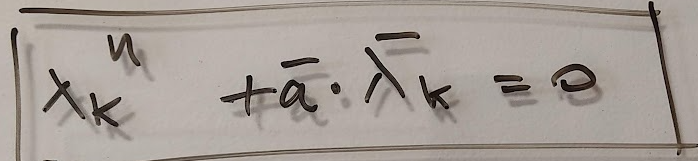 λₖⁿ + a̅ · λ̅ₖ = 0